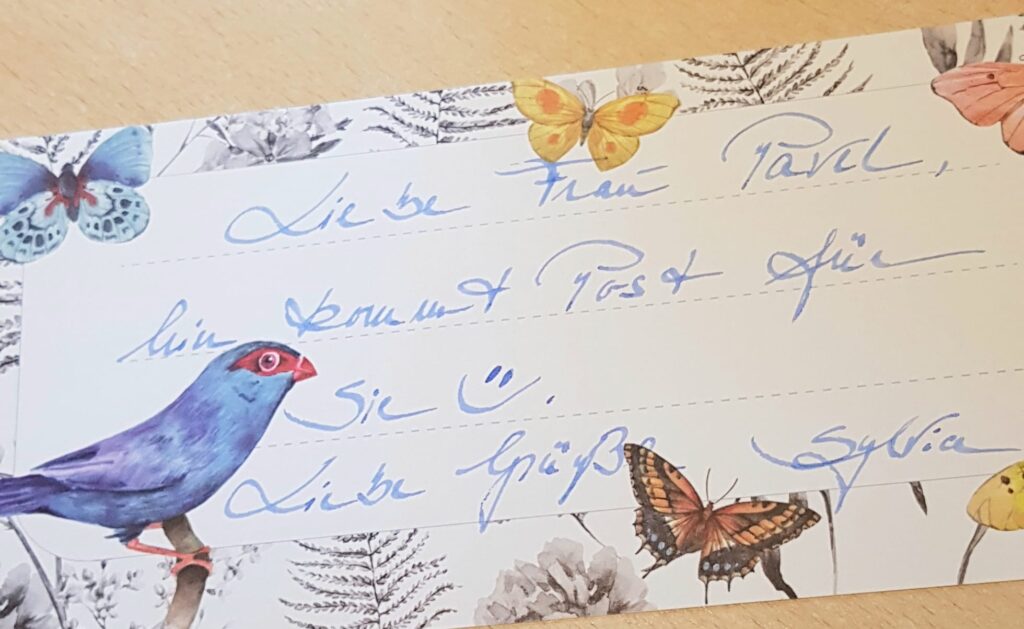 Liebe Frau Pavel,
hier kommt Post für
Sie ☺.
Liebe Grüße Sylvia